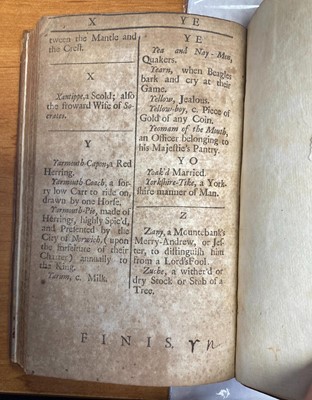 X
tween the Mantle and
the Crest.
X
Xantippe, a Scold; also
the froward Wife of So-
crates.
Y
Yarmouth-Capon, a Red
Herring.
Yarmouth Coach, a sor-
ry low Cart to ride on,
drawn by one Horse.
Yarmouth-Pie, made of
Herrings, highly Spic'd,
and Presented by the
City of Norwich, (upon
the forfeiture of their
Charter) annually to
the King.
Yarum, c. Milk.
YE
YE
Yea and Nay-Men,
Quakers.
Yearn, when Beagles
bark and cry at their
Game.
Yellow, Jealous.
Yellow-boy, c. Piece of
Gold of any Coin.
Yeomam of the Mouth,
an Officer belonging to
his Majestie's Pantry.
YO
Yoak'd Married.
Yorkshire-Tike, a York-
shire manner of Man.
Z
Zany, a Mountebank's
Merry-Andrew, or Jes-
ter, to distinguish him
from a Lord's Fool.
Zuche, a wither'd or
dry Stock or Stub of a
Tree.
FINIS,